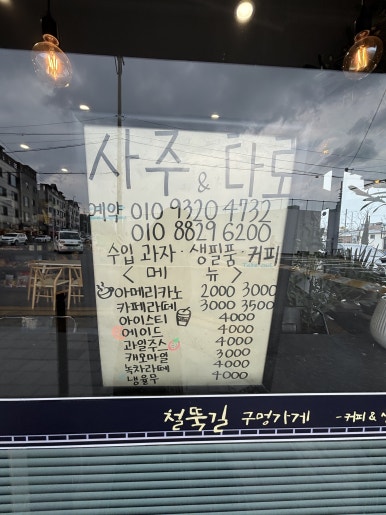 사주 & 타로
예약 010 9320 4732
010 8829 6200
수입 과자 · 생필품 · 커피
< 메 뉴 >
아메리카노 2000 3000
카페라떼 3000 3500
아이스티 4000
에이드 4000
과일주스 4000
캐모마일 3000
녹차라떼 4000
냉율무 4000
철뚝길 구멍가게 -커피 &